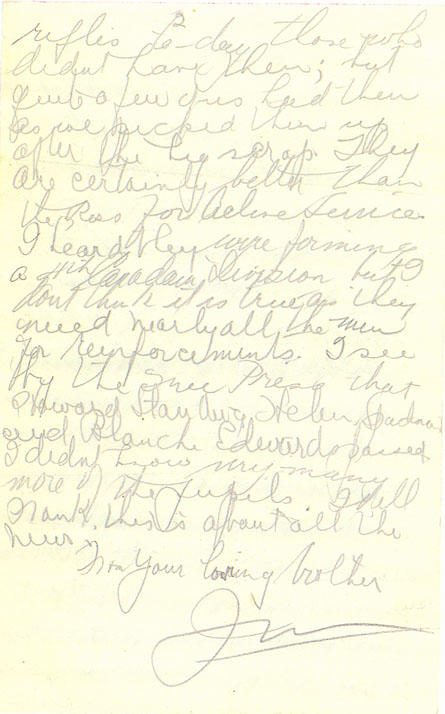 rifles to-day, those who
didn't have them; but
quite a few of us had them
as we picked them up
after the big scrap. They
are certainly better than
the Ross for active service.
I heard they were forming
a 4th Canadian Division but I
dont think it is true as they
need nearly all the men
for reinforcements. I see
by the Free Press that
Howard Helen
and Blanche Edwards passed
I didn't know very many
more of the pupils. Well
Frank, this is about all the
news.
From Your loving brother